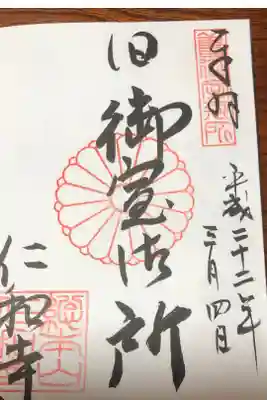 奉拝
平成二十二年
三月四日
旧御室御所
仁和寺